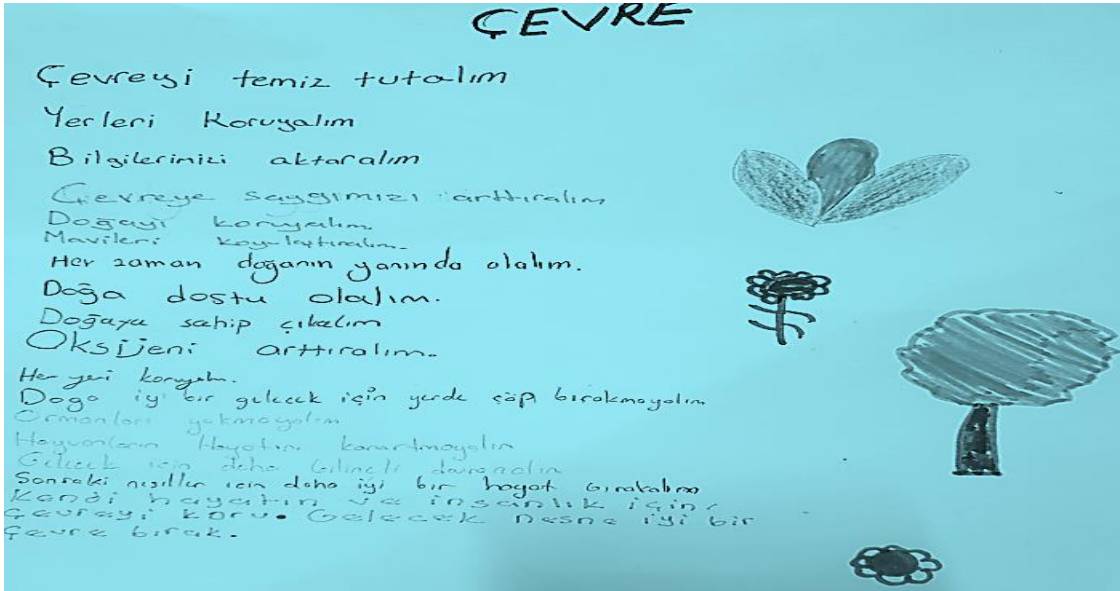 ÇEVRE
Çevreyi temiz tutalım
Yerleri Koruyalım
Bilgilerimizi aktaralım
Çevreye saygımızı arttıralım
Doğayı koruyalım.
Mavileri koyulaştıralım.
Her zaman doğanın yanında olalım.
Doğa dostu olalım.
Doğaya sahip çıkalım
Oksijeni arttıralım.
Her yeri koruyalım.
Doğa iyi bir gelecek için yerde çöp bırakmayalım
Ormanları yakmayalım
Hayvanların Hayatını karartmayalım
Gelecek için daha bilinçli davranalım
Sonraki nesiller için daha iyi bir hayat bırakalım
Kendi hayatın ve insanlık için,
Çevreyi koru. Gelecek nesne iyi bir
Çevre bırak.